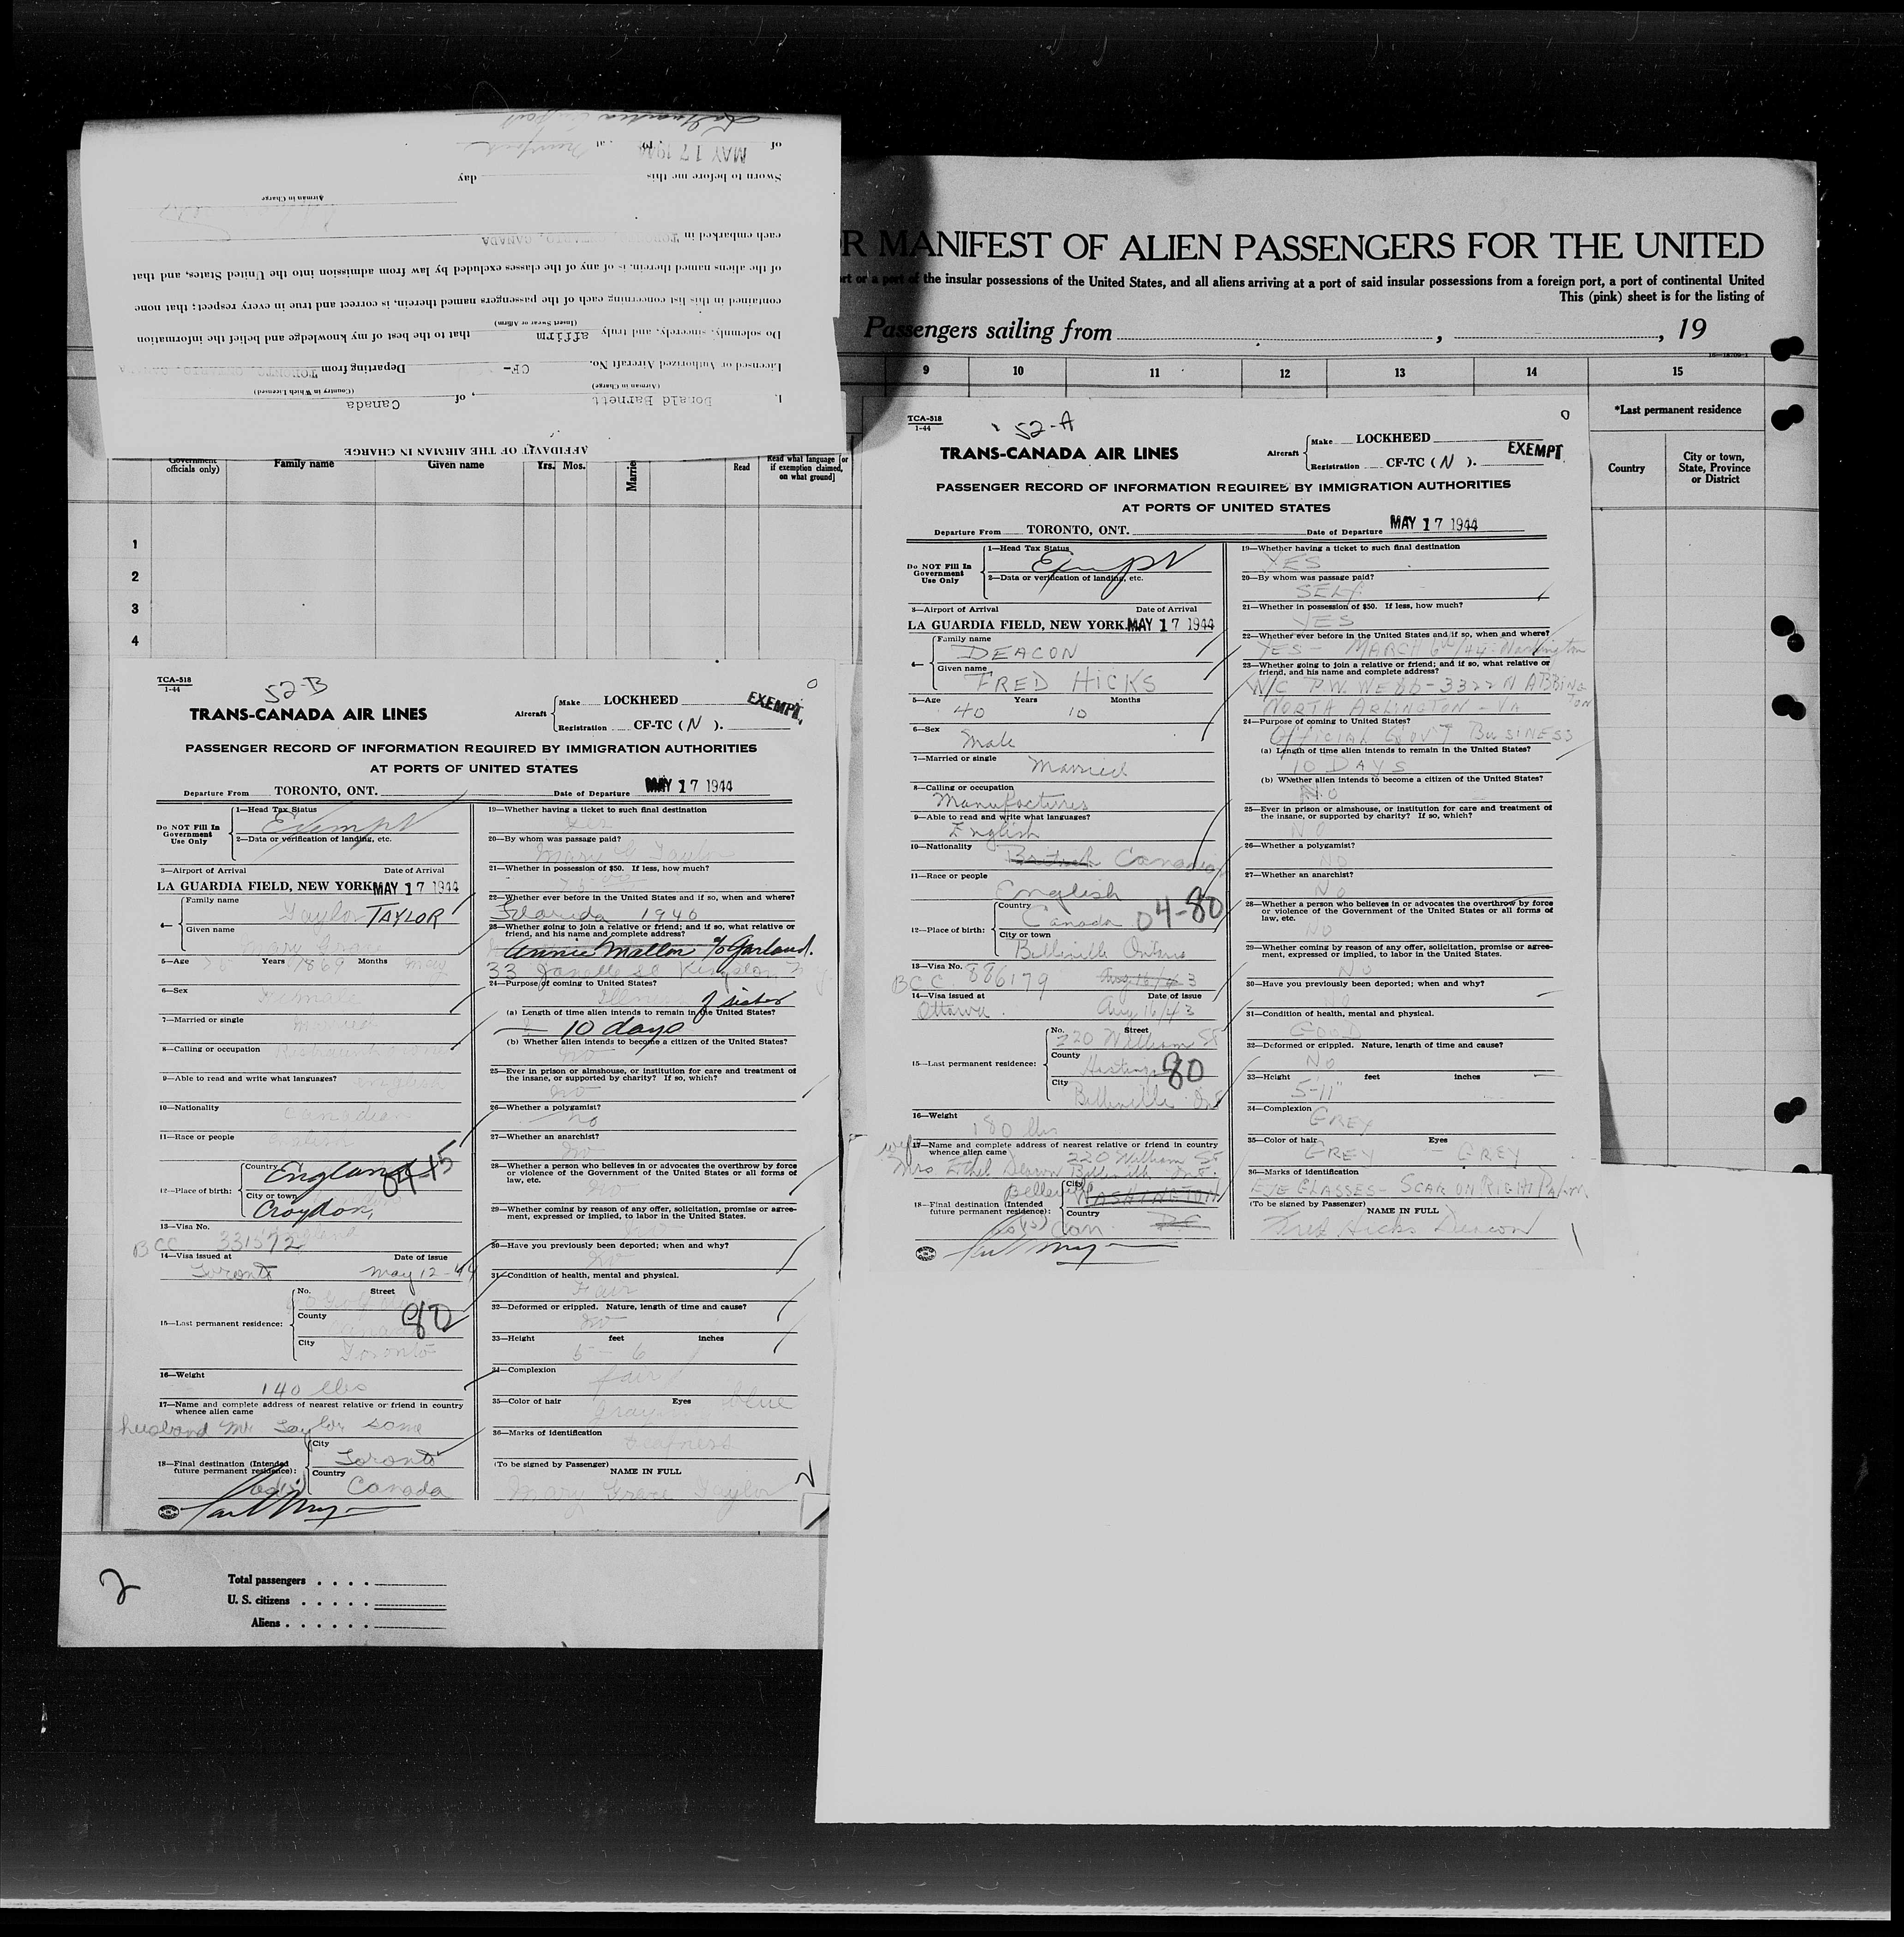 AFFIDAVIT OF THE AIRMAN IN CHARGE
I, Donald Barnett, of Canada
(Airman in Charge) (Country in Which Licensed)
Licensed or Authorized Aircraft No. CF- Departing from TORONTO, ONTARIO, CANADA
Do solemnly, sincerely, and truly affirm that to the best of my knowledge and belief the information
(Insert Swear or Affirm)
contained in this list concerning each of the passengers named therein, is correct and true in every respect; that none
of the aliens named therein, is of any of the classes excluded by law from admission into the United States, and that
each embarked in TORONTO, ONTARIO, CANADA
Airman in Charge
Sworn to before me this day
of MAY 17 1944 at
OR MANIFEST OF ALIEN PASSENGERS FOR THE UNITED
rt or a part of the insular possessions of the United States, and all aliens arriving at a port of said insular possessions from a foreign port, a port of continental United
This (pink) sheet is for the listing of
Passengers sailing from , , 19
16—18709-1
9 10 11 12 13 14 15
*Last permanent residence
Country City or town, State, Province or District
Government officials only) Family name Given name Yrs. Mos. Marrie Read Read what language [or if exemption claimed, on what ground]
1
2
3
4
TCA-518
1-44
52-B
TRANS-CANADA AIR LINES
Aircraft Make LOCKHEED
Registration CF-TC (N).
EXEMPT.
PASSENGER RECORD OF INFORMATION REQUIRED BY IMMIGRATION AUTHORITIES
AT PORTS OF UNITED STATES
Departure From TORONTO, ONT. Date of Departure MAY 17 1944
Do NOT Fill In Government Use Only
1—Head Tax Status
Exempt
2—Data or verification of landing, etc.
3—Airport of Arrival Date of Arrival
LA GUARDIA FIELD, NEW YORK MAY 17 1944
4— Family name
Taylor TAYLOR
Given name
Mary Grace
5—Age Years 1869 Months May
6—Sex
Female
7—Married or single
Married
8—Calling or occupation
9—Able to read and write what languages?
English
10—Nationality
Canadian
11—Race or people
English
12—Place of birth: Country
England 04-15
City or town
Croydon,
England
13—Visa No.
BCC 331572
14—Visa issued at Date of issue
Toronto May 12-44
15—Last permanent residence: No. Street
County
80
City
Toronto
16—Weight
140 lbs
17—Name and complete address of nearest relative or friend in country
whence alien came
husband Mr Taylor same
18—Final destination (Intended
future permanent residence):
City
Toronto
Country
Canada
19—Whether having a ticket to such final destination
Yes
20—By whom was passage paid?
Mary G Taylor
21—Whether in possession of $50. If less, how much?
22—Whether ever before in the United States and if so, when and where?
Florida 1940
23—Whether going to join a relative or friend; and if so, what relative or
friend, and his name and complete address?
Annie Mallon % Garland.
33 Janette St Kingston N Y
24—Purpose of coming to United States?
Illness of sister
(a) Length of time alien intends to remain in the United States?
10 days
(b) Whether alien intends to become a citizen of the United States?
no
25—Ever in prison or almshouse, or institution for care and treatment of
the insane, or supported by charity? If so, which?
no
26—Whether a polygamist?
no
27—Whether an anarchist?
no
28—Whether a person who believes in or advocates the overthrow by force
or violence of the Government of the United States or all forms of
law, etc.
no
29—Whether coming by reason of any offer, solicitation, promise or agree-
ment, expressed or implied, to labor in the United States.
30—Have you previously been deported; when and why?
no
31—Condition of health, mental and physical.
Fair
32—Deformed or crippled. Nature, length of time and cause?
no
33—Height feet inches
5 - 6
34—Complexion
fair
35—Color of hair Eyes
gray blue
36—Marks of identification
deafness
(To be signed by Passenger)
NAME IN FULL
Mary Grace Taylor
2
Total passengers
U. S. citizens
Aliens
TCA-518
1-44
52-A
TRANS-CANADA AIR LINES
Aircraft Make LOCKHEED
Registration CF-TC (N).
EXEMPT.
PASSENGER RECORD OF INFORMATION REQUIRED BY IMMIGRATION AUTHORITIES
AT PORTS OF UNITED STATES
Departure From TORONTO, ONT. Date of Departure MAY 17 1944
Do NOT Fill In Government Use Only
1—Head Tax Status
Exempt
2—Data or verification of landing, etc.
3—Airport of Arrival Date of Arrival
LA GUARDIA FIELD, NEW YORK. MAY 17 1944
4— Family name
DEACON
Given name
FRED HICKS
5—Age Years Months
40 10
6—Sex
Male
7—Married or single
Married
8—Calling or occupation
Manufacturer
9—Able to read and write what languages?
English
10—Nationality
British Canadian
11—Race or people
English
12—Place of birth: Country
Canada 04-80
City or town
Belleville Ontario
13—Visa No.
BCC. 886179 Aug 16/43
14—Visa issued at Date of issue
Ottawa. Aug 16/43
15—Last permanent residence: No. Street
220 William St
County
Hastings 80
City
Belleville Ont
16—Weight
180 lbs
17—Name and complete address of nearest relative or friend in country
whence alien came
wife 220 William St
Mrs Ethel Deacon Belleville Ont.
18—Final destination (Intended
future permanent residence):
City
Belleville WASHINGTON
Country
Can DC
19—Whether having a ticket to such final destination
YES
20—By whom was passage paid?
SELF
21—Whether in possession of $50. If less, how much?
YES
22—Whether ever before in the United States and if so, when and where?
YES - MARCH 6th/44 - Washington
23—Whether going to join a relative or friend; and if so, what relative or
friend, and his name and complete address?
W/C P.W. WEBB - 3322 N ABBINGTON
NORTH ARLINGTON - VA
24—Purpose of coming to United States?
OFFICIAL GOV'T BUSINESS
(a) Length of time alien intends to remain in the United States?
10 DAYS
(b) Whether alien intends to become a citizen of the United States?
No
25—Ever in prison or almshouse, or institution for care and treatment of
the insane, or supported by charity? If so, which?
NO
26—Whether a polygamist?
NO
27—Whether an anarchist?
No
28—Whether a person who believes in or advocates the overthrow by force
or violence of the Government of the United States or all forms of
law, etc.
NO
29—Whether coming by reason of any offer, solicitation, promise or agree-
ment, expressed or implied, to labor in the United States.
No
30—Have you previously been deported; when and why?
NO
31—Condition of health, mental and physical.
GOOD
32—Deformed or crippled. Nature, length of time and cause?
No
33—Height feet inches
5-11"
34—Complexion
GREY
35—Color of hair Eyes
GREY - GREY
36—Marks of identification
EYE GLASSES - SCAR ON RIGHT PALM
(To be signed by Passenger)
NAME IN FULL
Fred Hicks Deacon